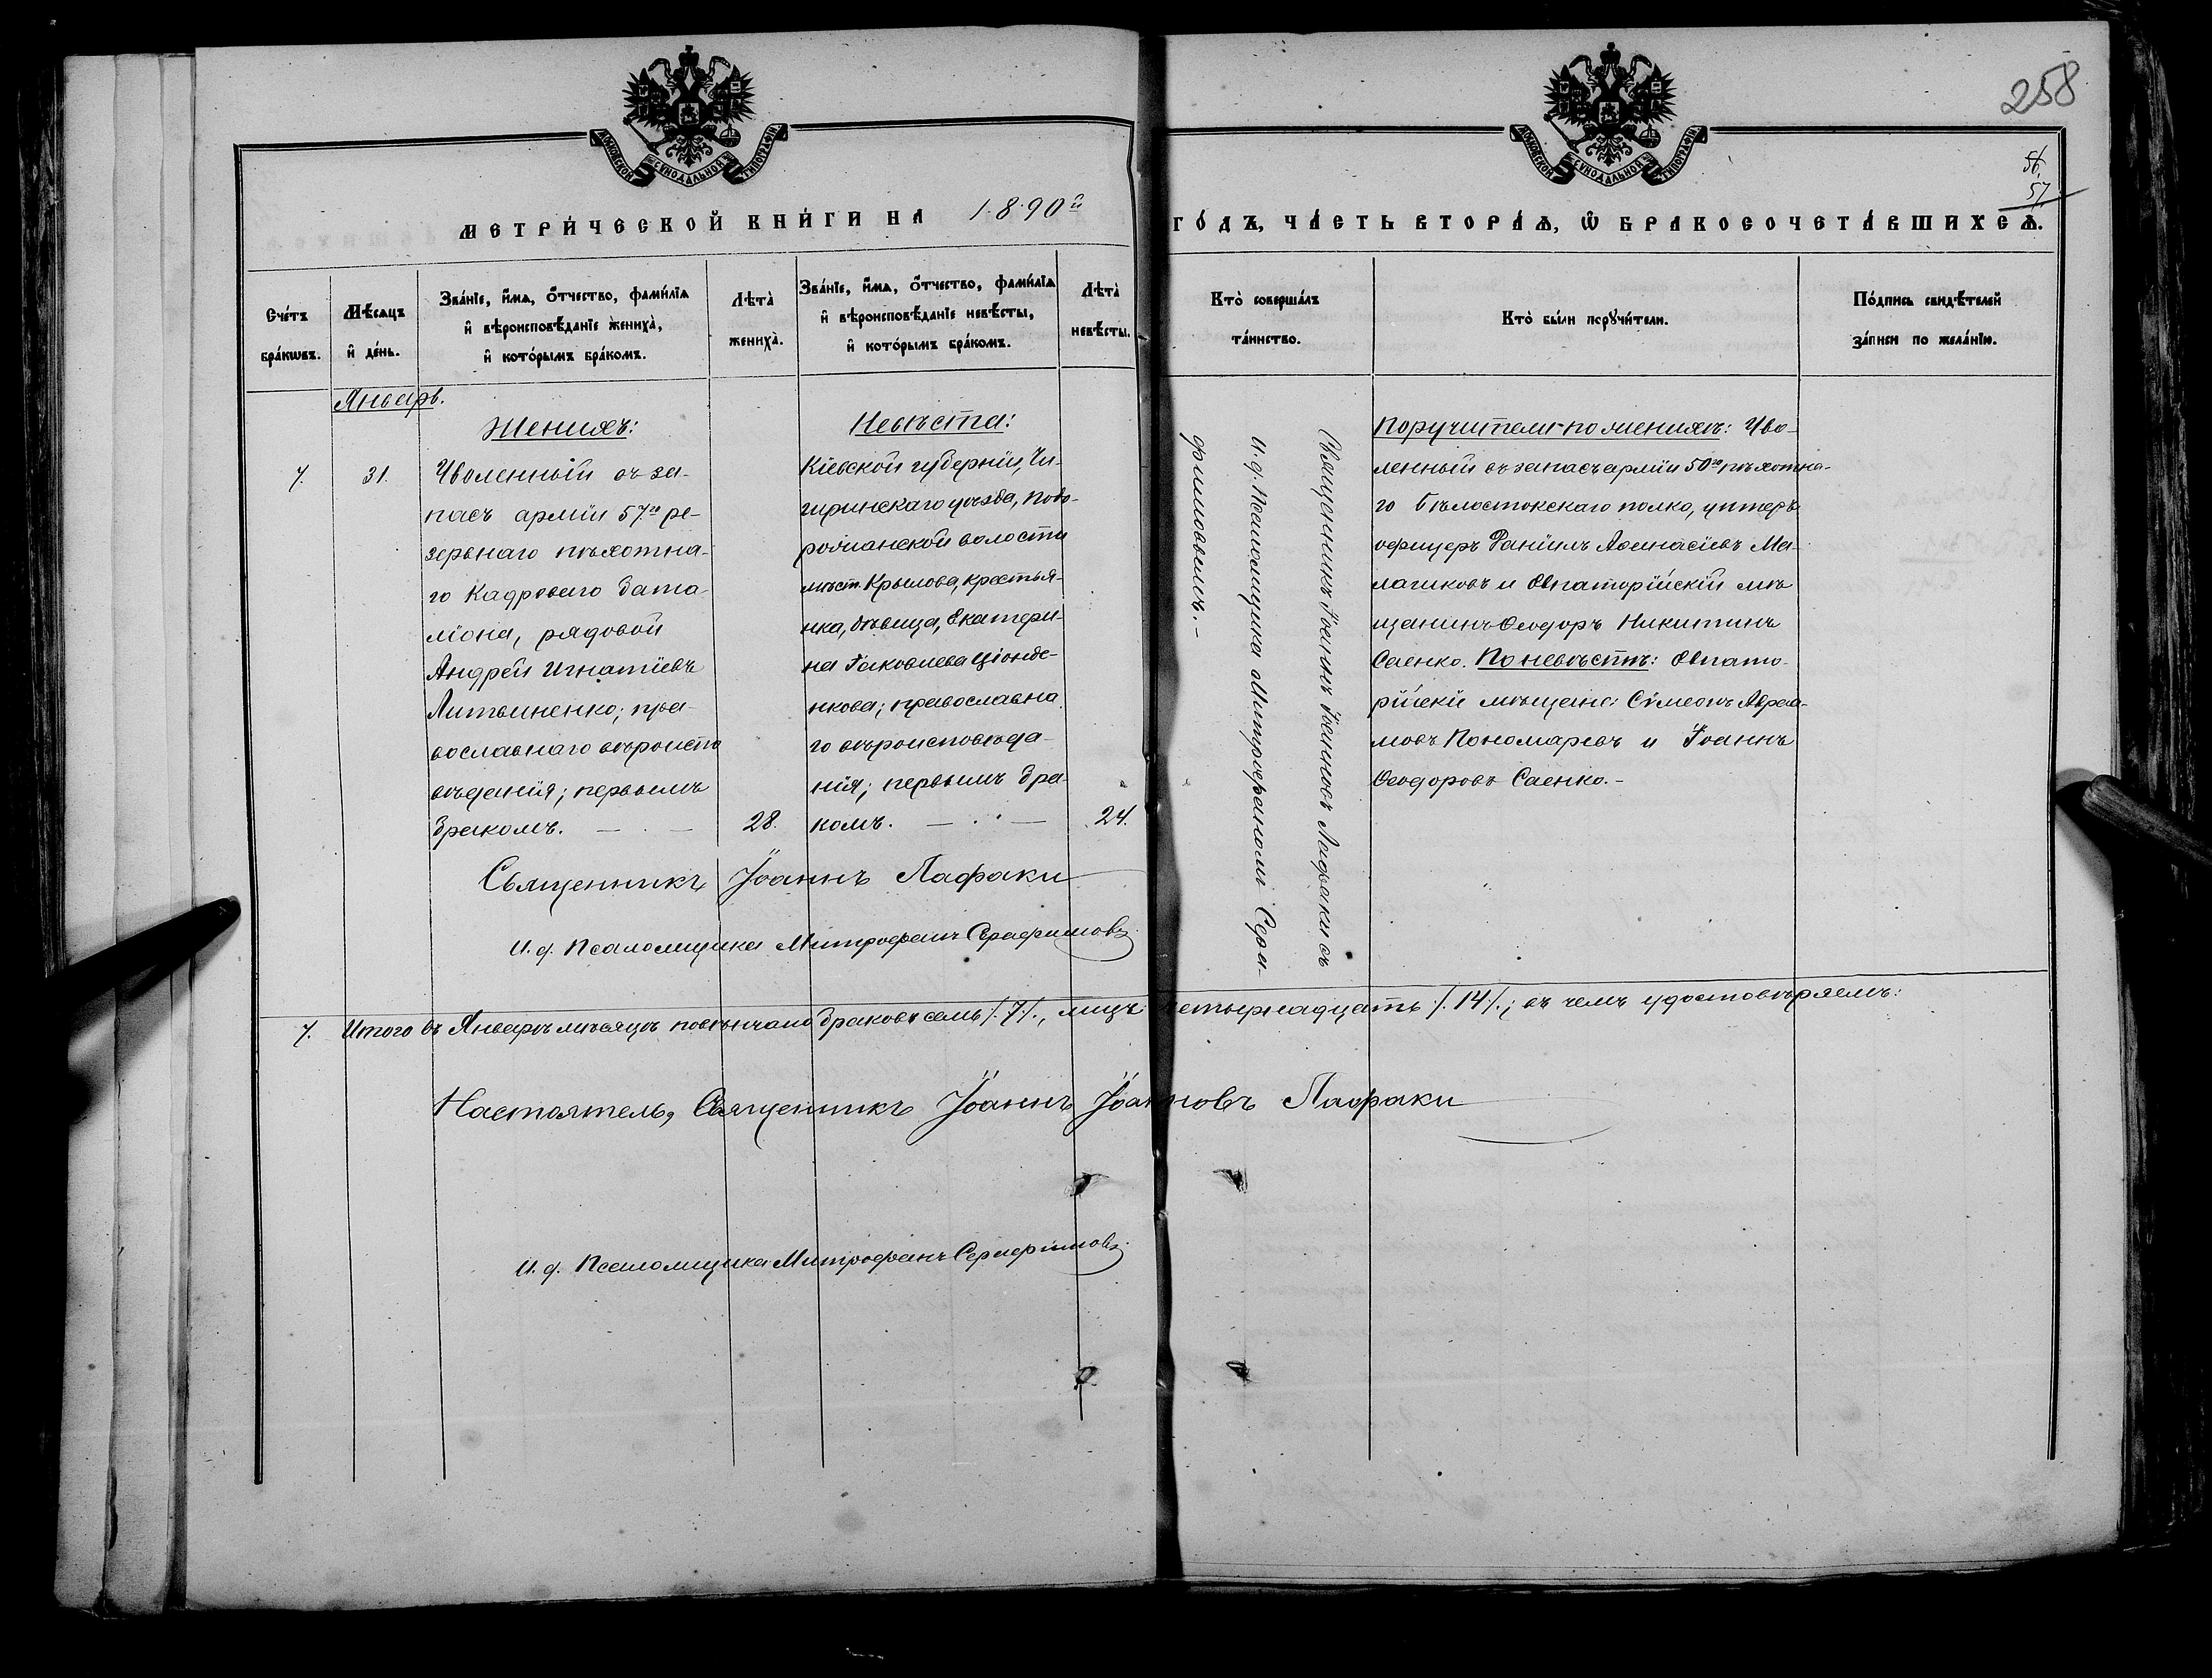 258
56.
57.
МОСКОВСКОЙ СѴНОДАЛЬНОЙ ТИПОГРАФІИ
МОСКОВСКОЙ СѴНОДАЛЬНОЙ ТИПОГРАФІИ
МЕТРИ́ЧЕСКОЙ КНИ́ГИ НА 1890й ГО́ДЪ, ЧА́СТЬ ВТОРА́Ѧ, Ѽ БРАКОСОЧЕТА́ВШИХСѦ.
Сче́тъ
бра́кѡвъ.
Мѣ́сѧцъ
и҆ де́нь.
Зва́нїе, и҆́мѧ, ѻ҆́тчество, фами́лїѧ
и҆ вѣроисповѣ́данїе жениха̀,
и҆ кото́рымъ бра́комъ.
Лѣта̀
жениха̀.
Зва́нїе, и҆́мѧ, ѻ҆́тчество, фами́лїѧ
и҆ вѣроисповѣ́данїе невѣ́сты,
и҆ кото́рымъ бра́комъ.
Лѣта̀
невѣ́сты.
Кто̀ соверша́лъ
та́инство.
Кто̀ бы́ли порꙋчи́тели.
По́дпись свидѣ́телей
за́писи по жела́нїю.
Январь.
7.
31.
Женихъ:
Уволенный въ за-
пасъ арміи 57го ре-
зервнаго пѣхотна-
го Кадроваго бата-
ліона, рядовой
Андрей Игнатіевъ
Литвиненко; пра-
вославнаго вѣроиспо
вѣданія; первымъ
бракомъ. —.—
28.
Невѣста:
Кіевской губерніи, Чи-
гиринскаго уѣзда, Ново-
рочанской волости
мѣст. Крылова, крестья-
нка, дѣвица, Екатери-
на Іаковлева
нкова; православна
го вѣроисповѣда-
нія; первымъ бра-
комъ. —.—
24.
Священникъ Іоаннъ Іоанновъ Лафаки съ
и.д. Псаломщика Митрофаномъ Сера-
фимовымъ.-
Поручители по женихѣ: Уво-
ленный въ запасъ арміи 50го пѣхотна-
го Бѣлостокскаго полка, унтеръ
офицеръ Даніилъ Аѳанасіевъ Ма-
лагиковъ и Евпаторійскій мѣ
щанинъ Ѳеодоръ Никитинъ
Саенко. По невѣстѣ: Евпато-
рійскіе мѣщане: Сѵмеонъ Авраа-
мовъ Пономаревъ и Іоаннъ
Ѳеодоровъ Саенко.-
Священникъ Іоаннъ Лафаки
И.д. Псаломщика Митрофанъ Серафимовъ
7. Итого въ Январѣ мѣсяцѣ повѣнчано браковъ семь /.7/., лицъ четырнадцать /.14/.; въ чемъ удостовѣряемъ:
Настоятель, Священникъ Іоаннъ Іоанновъ Лафаки
И.д. Псаломщика Митрофанъ Серафимовъ